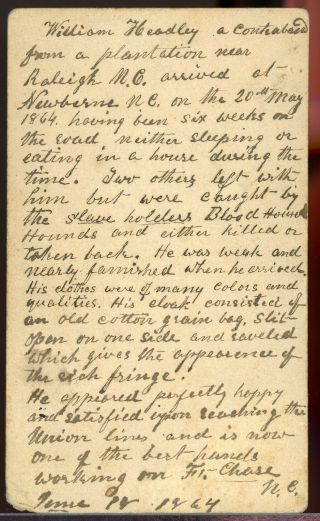 William Headley a contraband
from a plantation near
Raleigh N.C. arrived at
Newberne N.C. on the 20th May
1864. having been six weeks on
the road, neither sleeping or
eating in a house during the
time. Two others left with
him but were caught by
the slave holders Blood Hound
Hounds and either killed or
taken back. He was weak and
nearly famished when he arrived.
His clothes were of many colors and
qualities. His cloak consisted of
an old cotton grain bag, slit
open on one side and raveled
which gives the appearence of
the rich fringe.
He appeared perfectly happy
and satisfied upon reaching the
Union lines and is now
one of the best hands
working on Ft. Chase
N.C.
June 1864